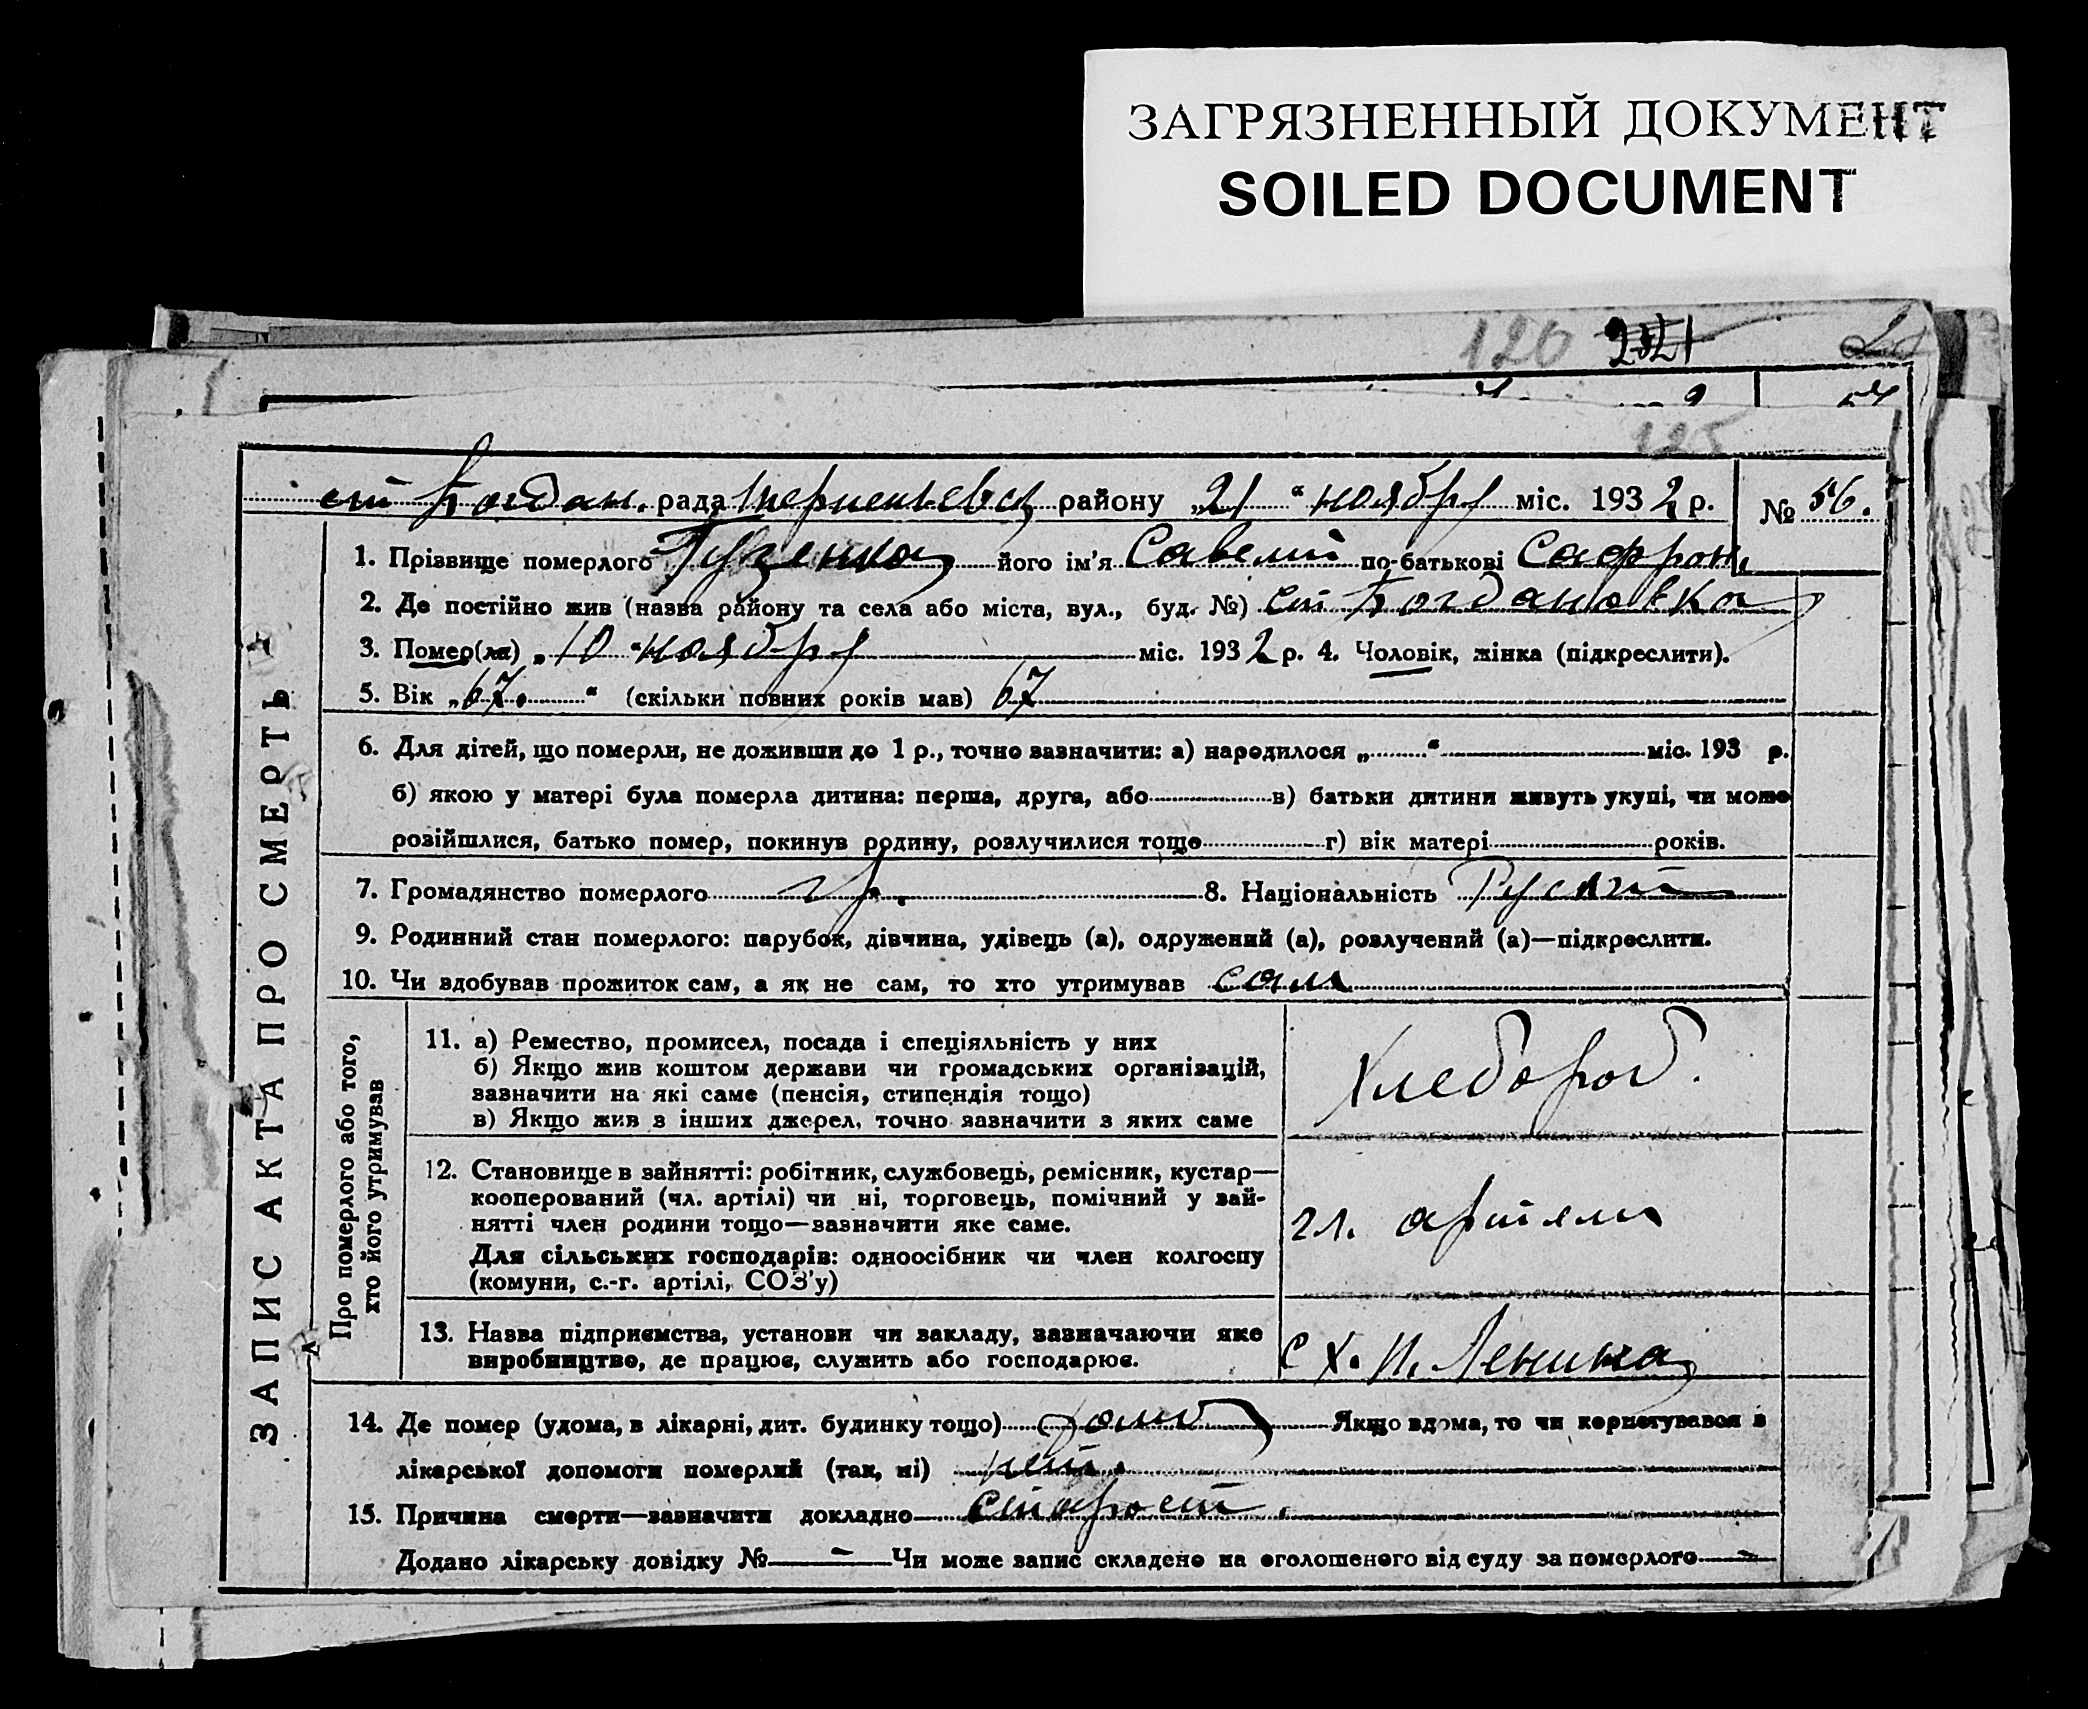 ЗАГРЯЗНЕННЫЙ ДОКУМЕНТ
SOILED DOCUMENT
120
125
ст Богдан. рада район у „21“ ноябр міс. 1932 р. № 56.
1. Прізвище померлого його ім'я Савелий по-батькові Сафрон.
2. Де постійно жив (назва району та села або міста, вул., буд. №) ст Богдановка
3. Помер(ла) „10“ ноябр міс. 1932 р. 4. Чоловік, жінка (підкреслити).
5. Вік „67.“ (скільки повних років мав) 67
6. Для дітей, що померли, не доживши до 1 р., точно зазначити: а) народилося „ “ міс. 193 р.
б) якою у матері була померла дитина: перша, друга, або в) батьки дитини живуть укупі, чи може
розійшлися, батько помер, покинув родину, розлучилися тощо г) вік матері років.
7. Громадянство померлого гр. 8. Національність Руский
9. Родинний стан померлого: парубок, дівчина, удівець (а), одружений (а), розлучений (а)—підкреслити.
10. Чи здобував прожиток сам, а як не сам, то хто утримував сам
ЗАПИС АКТА ПРО СМЕРТЬ
Про померлого або того,
хто його утримував
11. а) Ремество, промисел, посада і спеціяльність у них
б) Якщо жив коштом держави чи громадських організацій,
зазначити на які саме (пенсія, стипендія тощо)
в) Якщо жив з інших джерел, точно зазначити з яких саме
Хлебороб.
12. Становище в зайнятті: робітник, службовець, ремісник, кустар—
кооперований (чл. артілі) чи ні, торговець, помічний у зай-
нятті член родини тощо—зазначити яке саме.
Для сільських господарів: одноосібник чи член колгоспу
(комуни, с.-г. артілі, СОЗ'у)
чл. артели
13. Назва підприємства, установи чи закладу, зазначаючи яке
виробництво, де працює, служить або господарює.
с х. и. Ленина
14. Де помер (удома, в лікарні, дит. будинку тощо) дома Якщо вдома, то чи користувався з
лікарської допомоги померлий (так, ні) нет.
15. Причина смерти—зазначити докладно старост.
Додано лікарську довідку № - Чи може запис складено на оголошеного від суду за померлого -